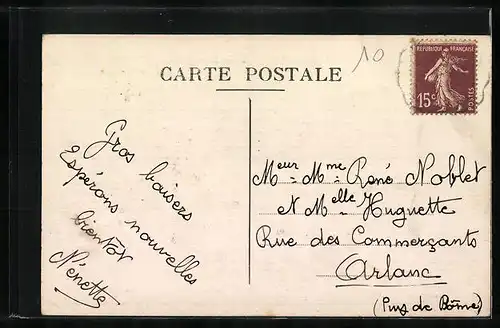 10
RÉPUBLIQUE FRANÇAISE
15 c.
POSTES
CARTE POSTALE
Gros baisers
Espérons nouvelles
bientôt
Nénette
Meur - Mme René Noblet
et Melle Huguette
Rue des Commerçants
Arlanc
(Puy de Dôme)